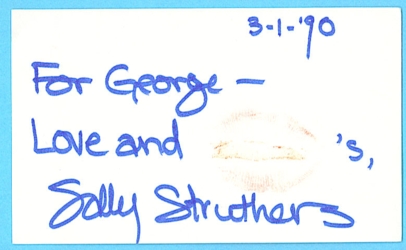 3-1-'90
For George –
Love and 's,
Sally Struthers